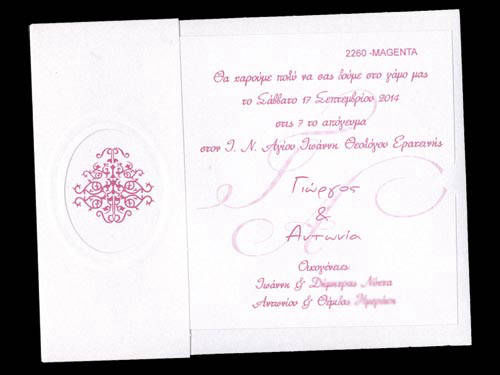 2260 -MAGENTA
Θα χαρούμε πολύ να σας δούμε στο γάμο μας
το Σάββατο 17 Σεπτεμβρίου 2014
στις 7 το απόγευμα
στον Ι. Ν. Αγίου Ιωάννη Θεολόγου Ερατεινής
Γιώργος
&
Αντωνία
Οικογένειες
Ιωάννη & Δήμητρας
Αντωνίου &